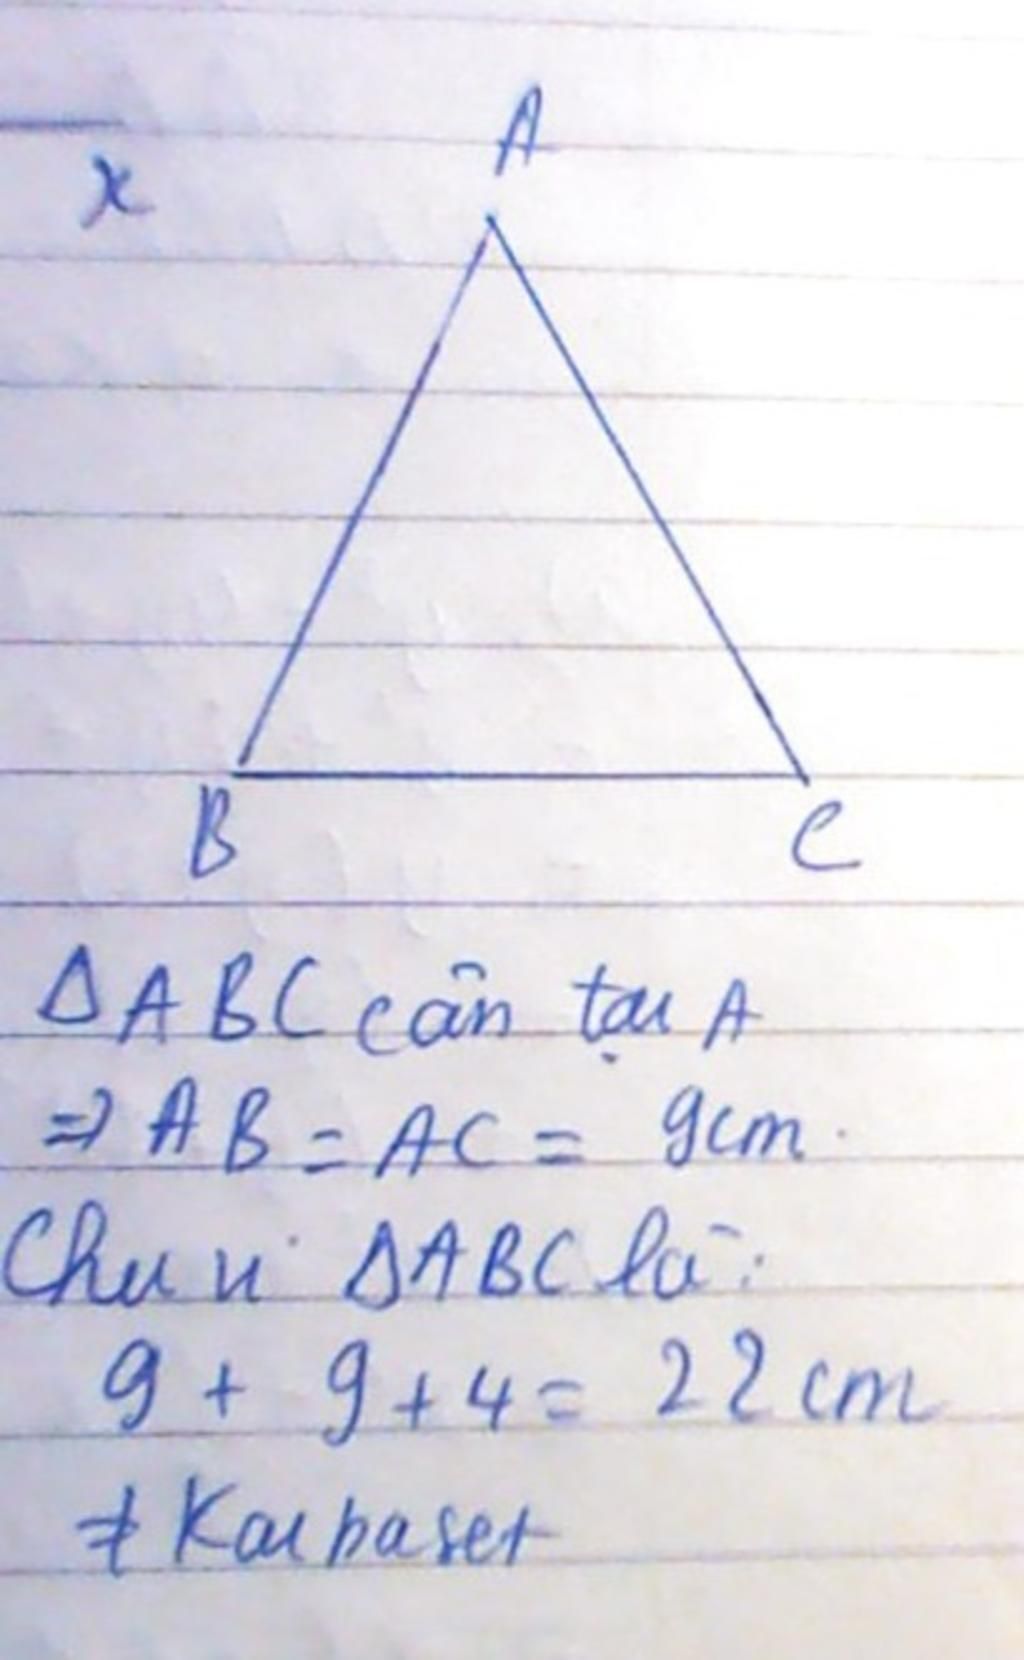 x
A
B
C
ΔABC cân tại A
=> AB = AC = 9cm.
Chu vi ΔABC là:
9 + 9 + 4 = 22 cm